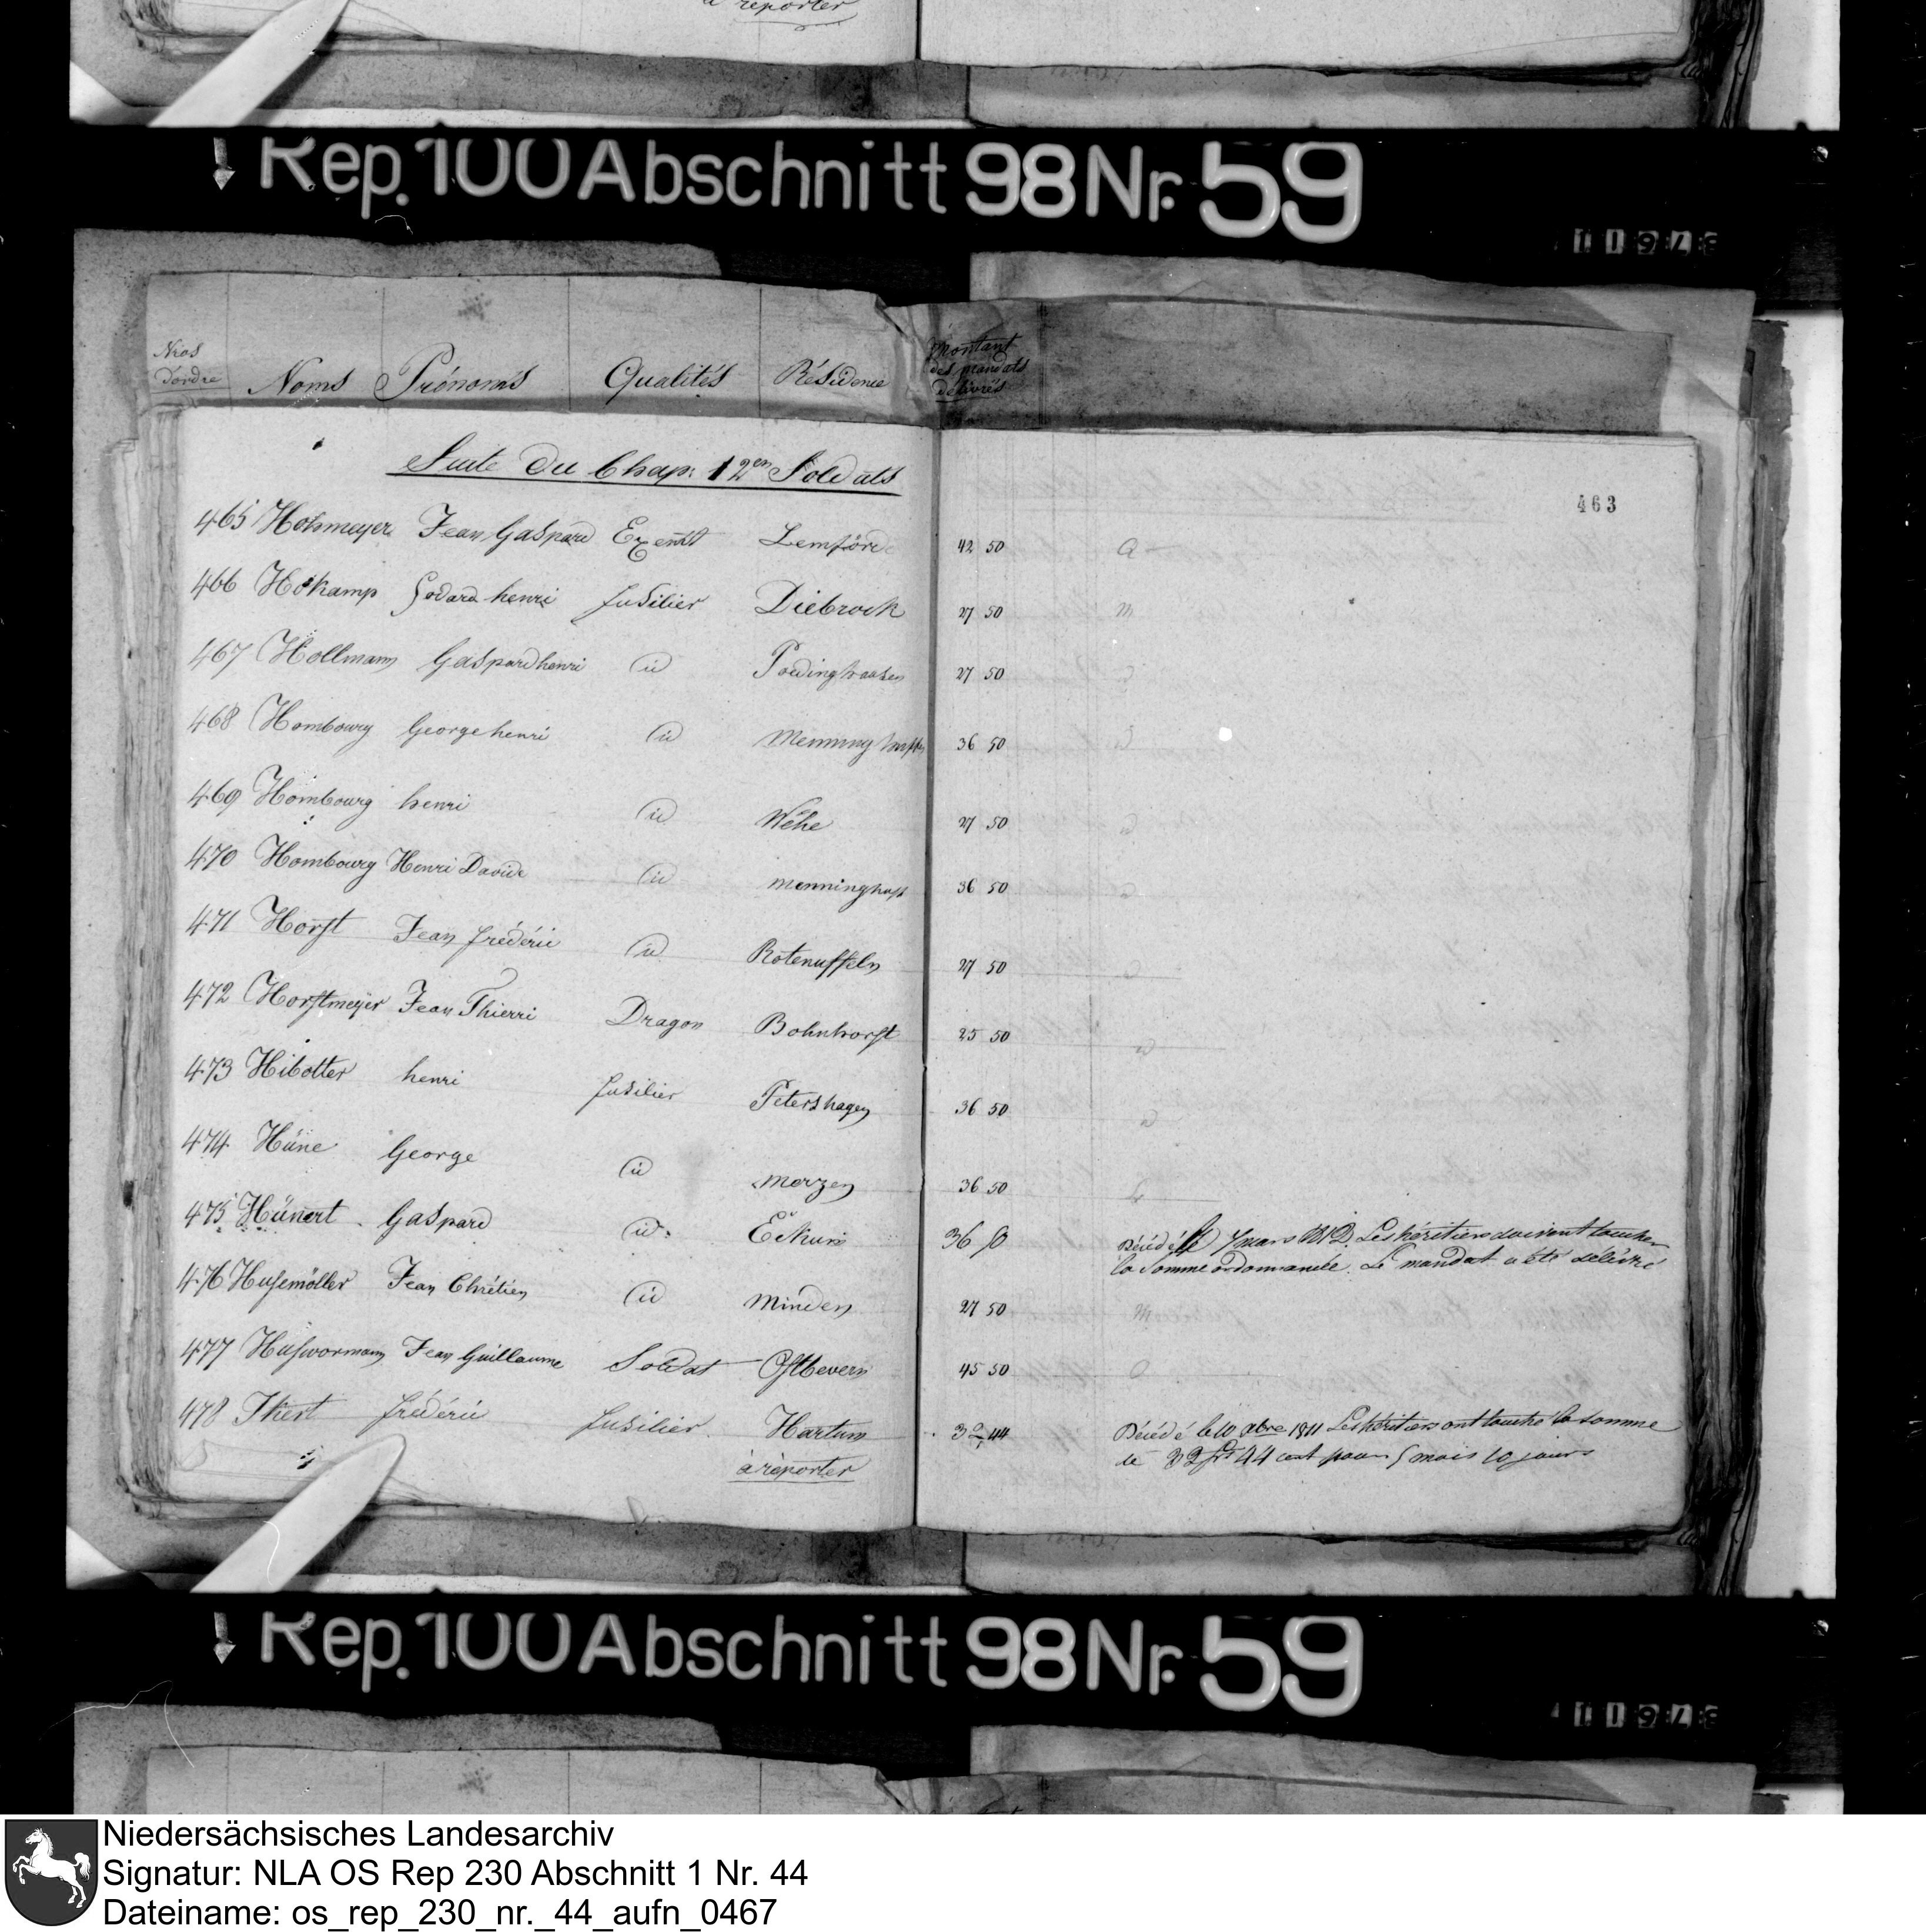 à reporter
Rep. 100 Abschnitt 98 Nr. 59
Nros d'ordre Noms Prénoms Qualités Résidence Montant des mandats délivrés
Suite du Chap: 1 2en Soldats
463
465 Hohmeyer Jean Gaspard Exemt Lemförde 42 50
466 Hokamp Godard henri fusilier Diebrock 27 50 m
467 Hollmann Gaspard henri id 27 50
468 Hombourg George henri id 36 50
469 Hombourg henri id Wehe 27 50
470 Hombourg Henri David id menninghuf 36 50
471 Horst Jean frédéric id Rotenuffeln 27 50
472 Horstmeyer Jean Thierri Dragon Bohnhorst 25 50
473 Hibotter henri fusilier Petershagen 36 50
474 Hüne George id merzen 36 50
475 Hünert Gaspard id. 36 50 Décédé le 7 mars 1812. Les héritiers doivent toucher
la somme ordonnancée. Le mandat a été délivré
476 Husemöller Jean Chrétien id Minden 27 50 m
477 Huswormann Jean Guillaume Soldat Ostbevern 45 50
478 Ikert frédéric fusilier. Hartum 32 44 Décédé le 10 xbre 1811 Les héritiers ont touché la somme
de 32 frs 44 cent pour 5 mois 10 jours
à reporter
Rep. 100 Abschnitt 98 Nr. 59
Niedersächsisches Landesarchiv
Signatur: NLA OS Rep 230 Abschnitt 1 Nr. 44
Dateiname: os_rep_230_nr._44_aufn_0467